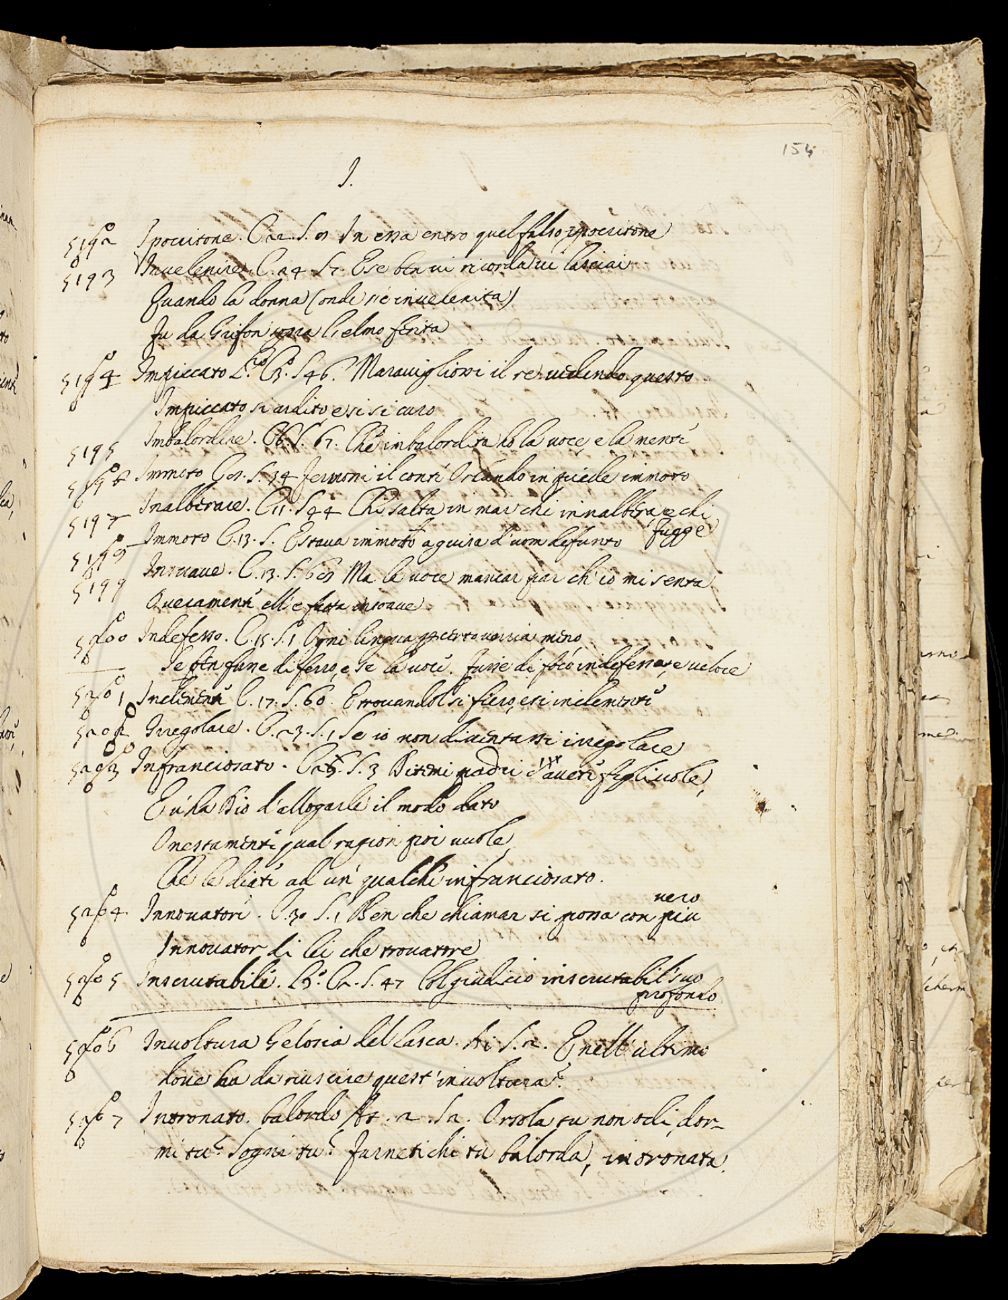 154
I.
5192 Ipocritone. C. 2. S. 9 In essa entrò quel falso ipocritone
5193 Invelenire C. 24 S. 7 E se ben vi ricorda vi lasciai
Quando la donna (ond' s'è invelenita)
Fu da Grifon sopra l'elmo ferita
5194 Impiccato L.º C. 3.º S. 46. Maravigliossi il re vedendo questo
Impiccato sì ardito e sì sicuro
5195 Imbalordire. C. 6. S. 67. Che imbalordita ho la voce, e la mente
Immoto C. 9. S. 74 Fermossi il conte Orlando in piede immoto
5197 Inalberare. C. 11. S. 44 Chi salta in mar chi innalbera, e chi
fugge
Immoto C. 13. S. Estava immoto a guisa d'uom defunto
5199 Insoave. C. 13. S. 69 Ma la voce mancar par ch'io mi senta
Quetamente ell'è fiata insoave
5200 Indefesso. C. 15. S. 1 Ogni lingua per certo verria meno
Se ben fune di ferro, e se la voce. Fusse di foco indefessa, e veloce
5201 Inclemente C. 17. S. 60. E trovandol sì fiero, e sì inclemente
5202 Iregolare. C. 23. S. 1 Se io non diventassi irregolare
5203 Infranciosato. C. 25. S. 3 Ditemi madri ch'avete figliuole,
E v'ha Dio d'allogarle il modo dato
Onestamente qual ragion poi vuole,
Che le diate ad un qualche infranciosato.
5204 Innovatore. C. 30 S. 1 Ben che chiamar si possa con più
vero
Innovator di lei che trovatore
5205 Inscrutabile. L. 3.º C. 2. S. 47 Col giudicio inscrutabil suo
profondo
5206 Involtura Gelosia del Lasca. At. S. 2. E nell'ultimo
dove ha da riuscire quest'involtura?
5207 Intronato. balordo At. 2. S. 2. Orsola tu non odi, dor-
mi tu? Sogni tu? Farnetichi tu balorda, intronata.